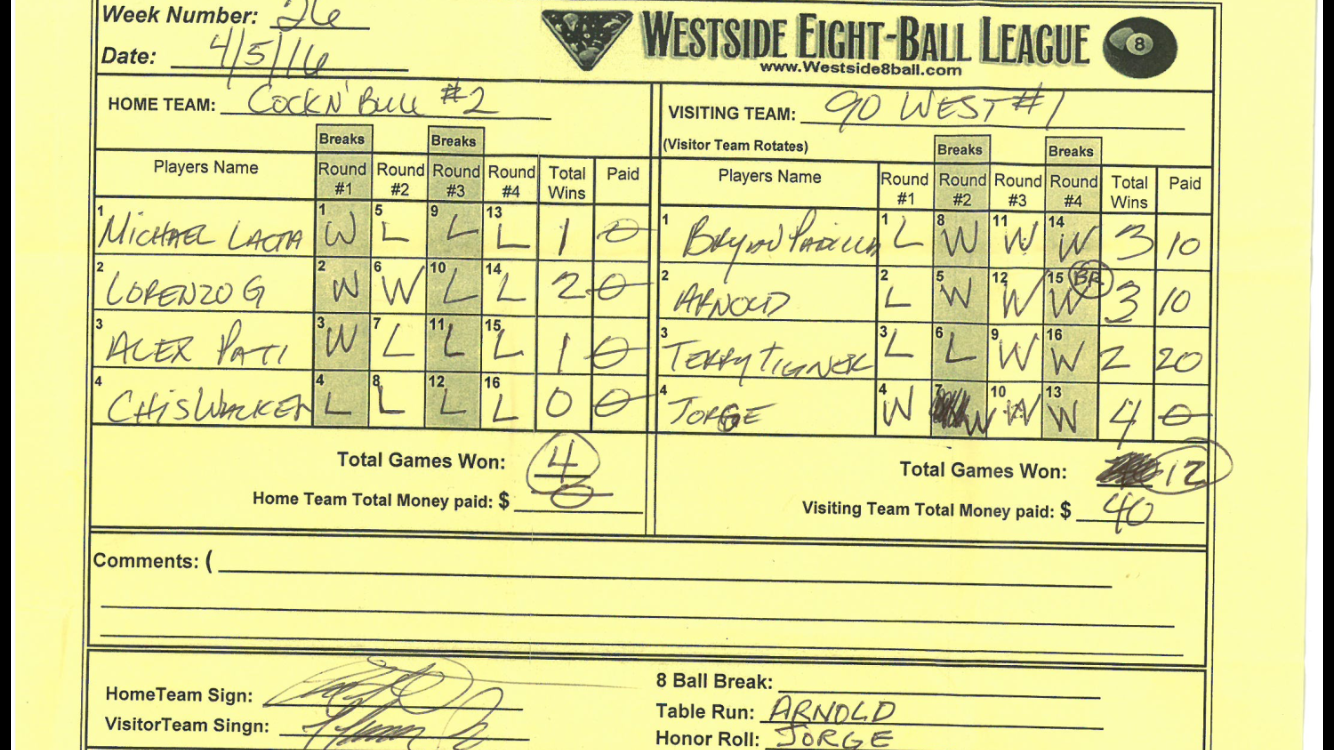 Week Number: 26
Date: 4/5/16
WESTSIDE EIGHT-BALL LEAGUE 8
www.Westside8ball.com
HOME TEAM: COCKN' BULL #2
VISITING TEAM: 90 WEST #1
(Visitor Team Rotates)
Breaks Breaks Breaks Breaks
Players Name Round #1 Round #2 Round #3 Round #4 Total Wins Paid
Players Name Round #1 Round #2 Round #3 Round #4 Total Wins Paid
1 MICHAEL LACTA 1 W 5 L 9 L 13 L 1 0
1 BRYAN PADILLA 1 L 8 W 11 W 14 W 3 10
2 LORENZO G 2 W 6 W 10 L 14 L 2 0
2 ARNOLD 2 L 5 W 12 W 15 W BR 3 10
3 ALEX PATI 3 W 7 L 11 L 15 L 1 0
3 TERRY TIGNER 3 L 6 L 9 W 16 W 2 20
4 CHIS WALKEN 4 L 8 L 12 L 16 L 0 0
4 JORGE 4 W 7 W 10 W 13 W 4 0
Total Games Won: 4
Total Games Won: 12
Home Team Total Money paid: $ 0
Visiting Team Total Money paid: $ 40
Comments: (
HomeTeam Sign:
8 Ball Break:
VisitorTeam Singn:
Table Run: ARNOLD
Honor Roll: JORGE